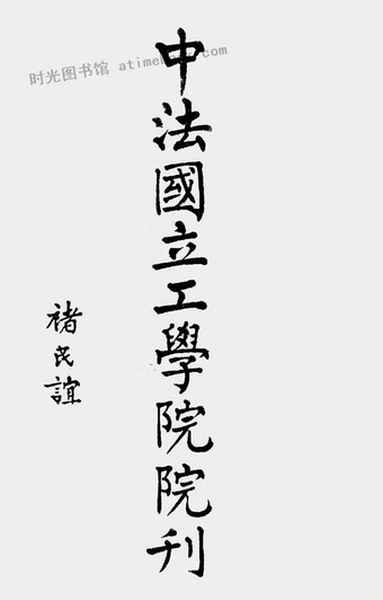 时光图书馆
中法國立工學院院刊
褚民誼